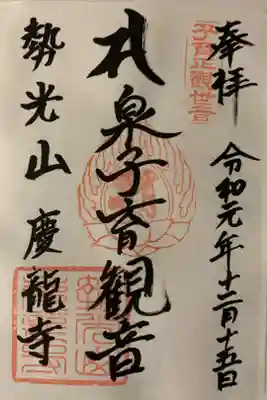 奉拝
子育正観世音
令和元年十二月十五日
札泉子育観音
勢光山 慶龍寺